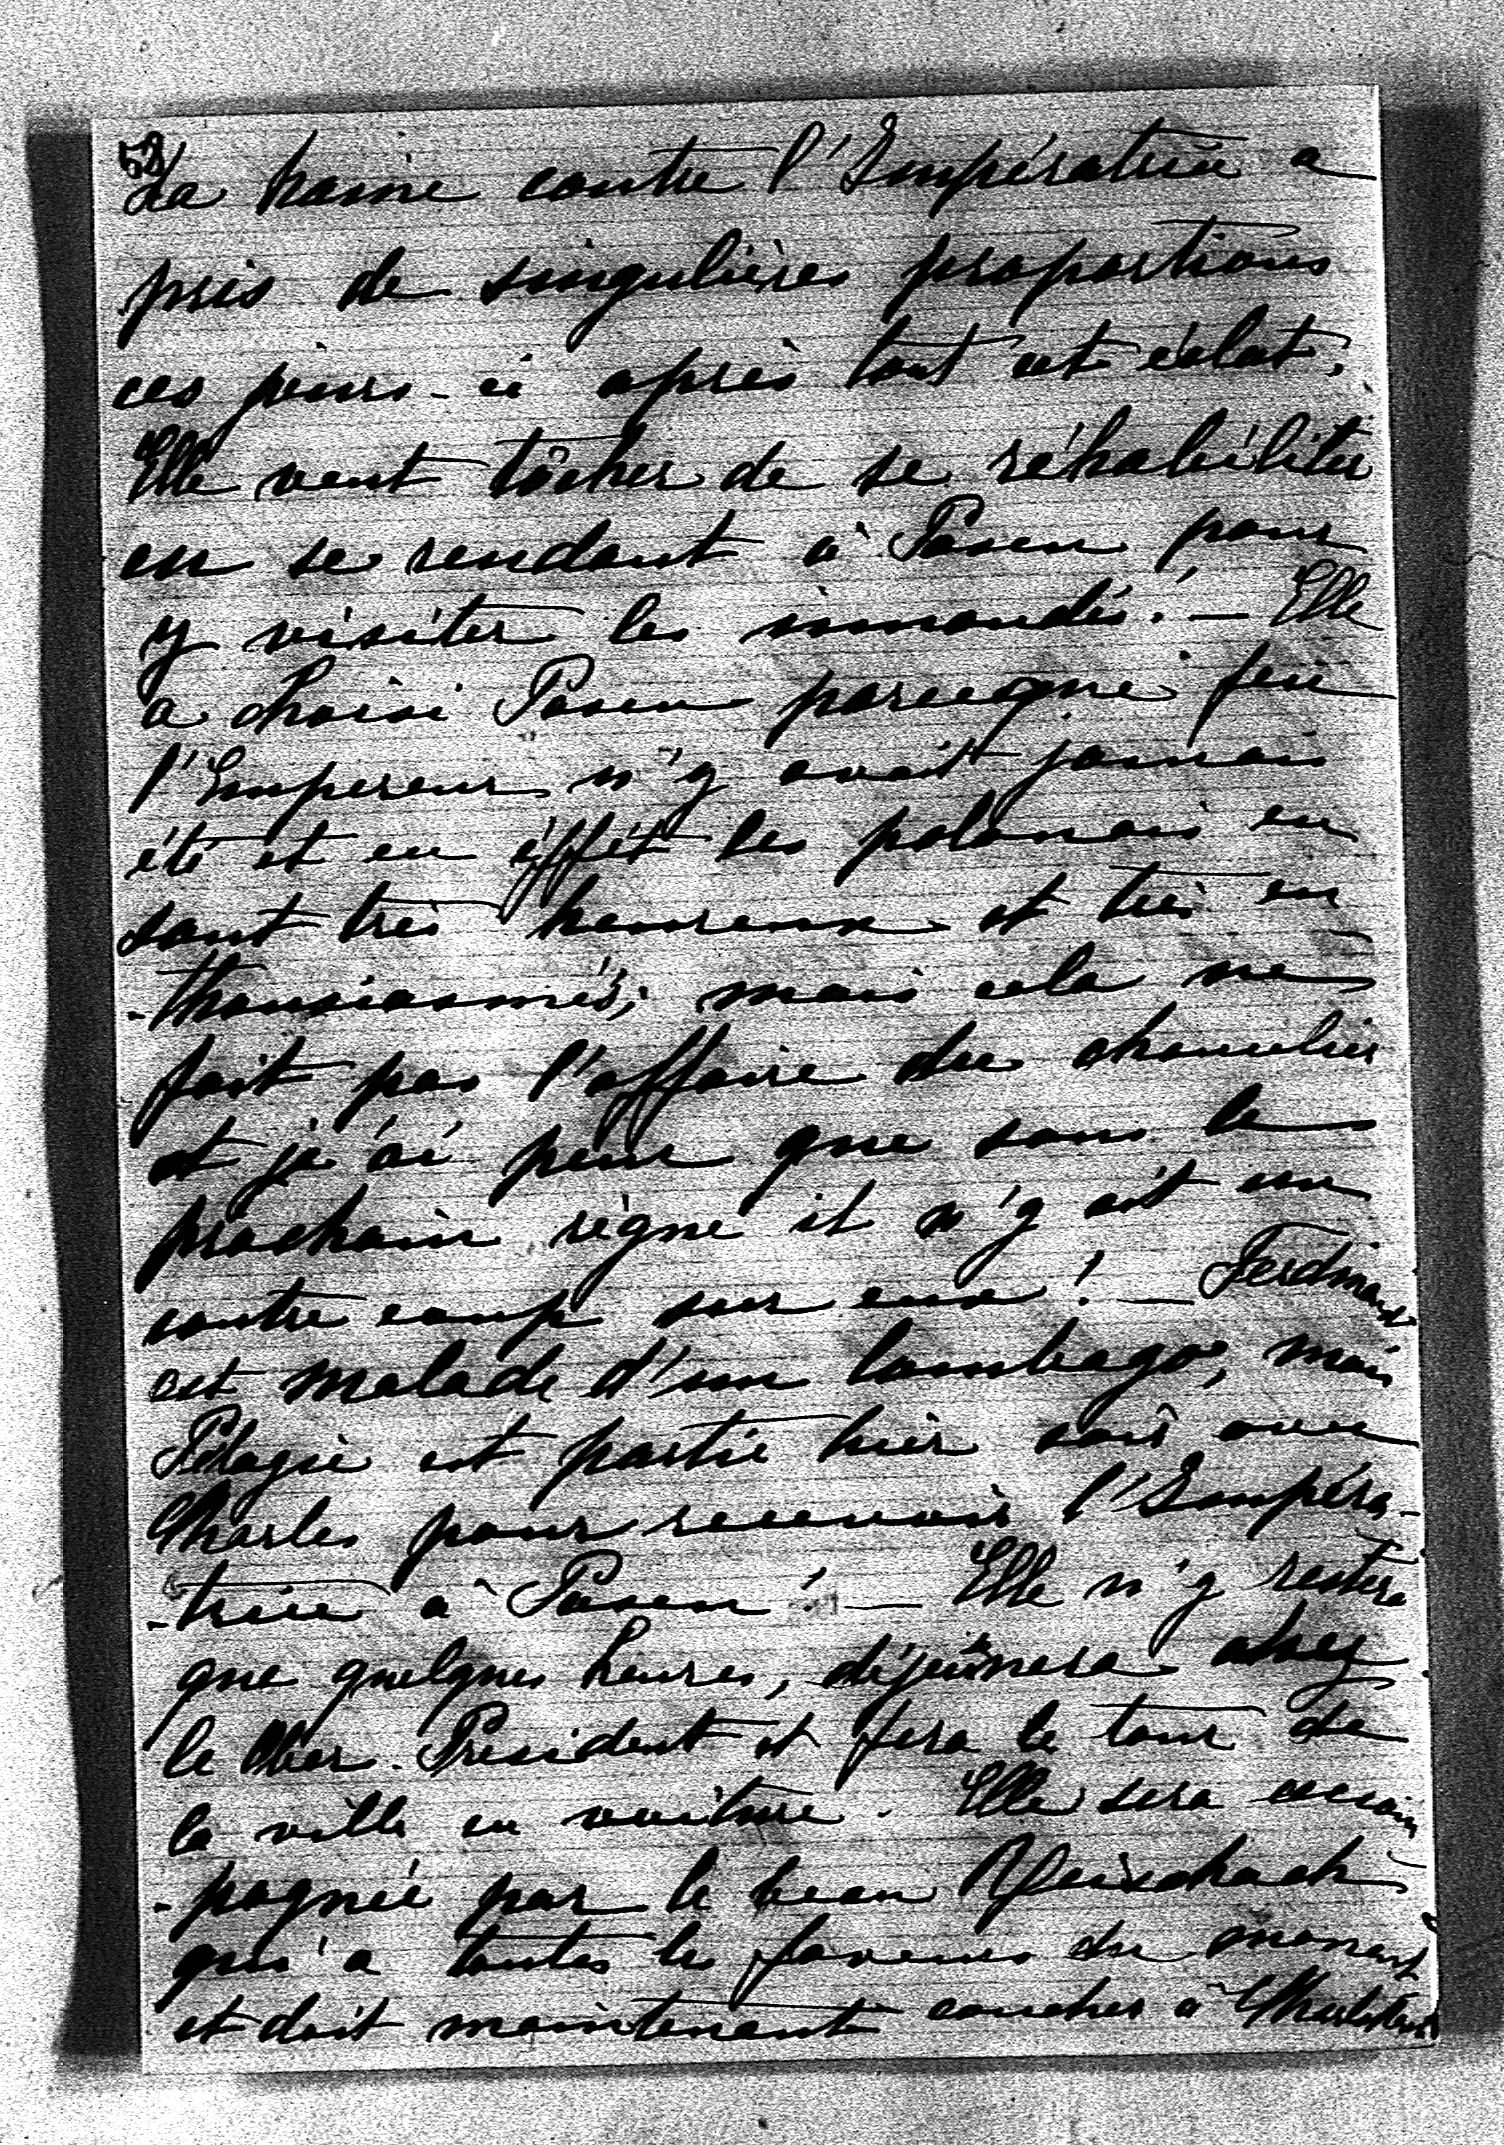 52
La haine contre l'Impératrice a
pris de singulières proportions
ces jours-ci après tout cet éclat.
Elle veut tâcher de se réhabiliter
en se rendant à Posen pour
y visiter les innondés. — Elle
a choisi Posen parceque feu
l'Empereur n'y avait jamais
été et en éffét les polonais en
sont très heureux et très en
-thousiasmés; mais cela ne
fait pas l'affaire du chancelier
et j'ai peur que sous le
prochain règne il n'y ait un
contre coup sur eux! — Ferdinand
est malade d'un lumbago, mais
Pélagie est partie hier soir avec
Charles pour recevoir l'Impéra-
-trice à Posen! — Elle n'y restera
que quelques heures, déjeûnera chez
le Ober-President et fera le tour de
la ville en voiture. Elle sera accom
-pagnée par le beau Reischach
qui a toutes les faveurs du moment
et doit maintenant coucher à